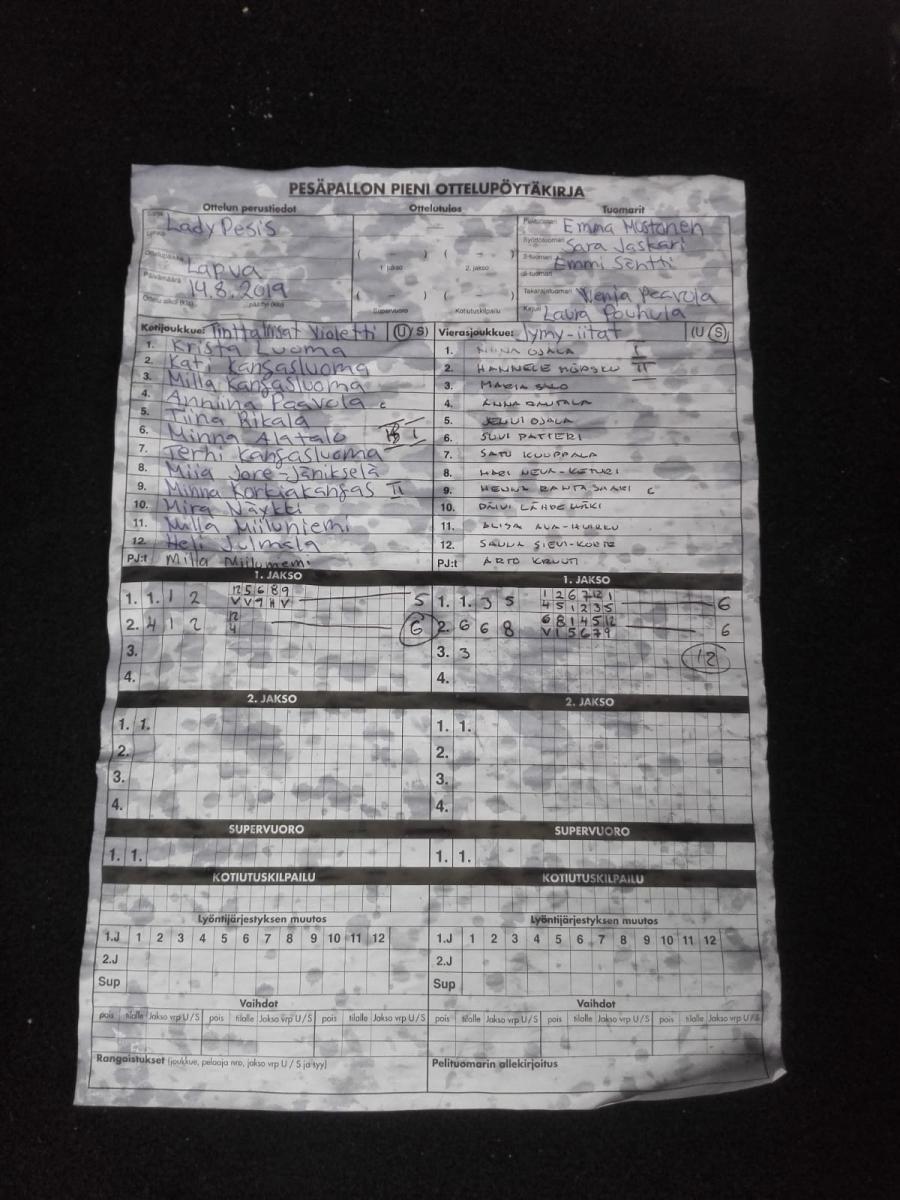 PESÄPALLON PIENI OTTELUPÖYTÄKIRJA
Ottelun perustiedot Ottelutulos Tuomarit
Lady Pesis
Lapua
Päivämäärä 14.8.2019
1. jakso 2. jakso
Supervuoro Kotiutuskilpailu
Pelituomari Emma Mustonen
Syöttötuomari Sara Jaskari
2-tuomari Emmi Säntti
3-tuomari
Takarajatuomari Venla Peavola
Kirjuri Laura Pouhula
Kotijoukkue: Tinttamisat Violetti (U/S)
1. Krista Luoma
2. Kati Kangasluoma
3. Milla Kangasluoma
4. Anniina Paavola c
5. Tiina Rikala
6. Minna Alatalo I
7. Terhi Kangasluoma
8. Miia Jore-Jänikselä
9. Minna Korkiakangas II
10. Mira Näykki
11. Milla Miiluniemi
12. Heli Julmala
PJ:t Milla Miilumemi
Vierasjoukkue: Jymy-iitat (U/S)
1. NIINA OJALA I
2. HANNELE II
3. MARIA SALO
4. ANNA RAUTALA
5. JENNI OJALA
6. SUVI PATTERI
7. SATU KUUPPALA
8. MARI NEVA-KETURI
9. HENNA RANTASAARI c
10. PÄIVI LÄHDEMÄKI
11. ELISA ALA-HUIKKU
12. SAULA SIEVI-KORTE
PJ:t ARTO KRUUTI
1. JAKSO 1. JAKSO
1. 1. 1 2 12 5 6 8 9 5
V V 9 H V
2. 4 1 2 12 6
4
3.
4.
1. 1. 3 5 1 2 6 7 12 1 6
4 5 1 2 3 5
2. 6 6 8 6 8 1 4 5 12 6
V 1 5 6 7 9
3. 3 12
4.
2. JAKSO 2. JAKSO
1. 1. 1. 1.
2. 2.
3. 3.
4. 4.
SUPERVUORO SUPERVUORO
1. 1. 1. 1.
KOTIUTUSKILPAILU KOTIUTUSKILPAILU
Lyöntijärjestyksen muutos Lyöntijärjestyksen muutos
1.J 1 2 3 4 5 6 7 8 9 10 11 12 1.J 1 2 3 4 5 6 7 8 9 10 11 12
2.J 2.J
Sup Sup
Vaihdot Vaihdot
pois tilalle Jakso vrp U/S pois tilalle Jakso vrp U/S pois tilalle Jakso vrp U/S pois tilalle Jakso vrp U/S pois tilalle Jakso vrp U/S pois tilalle Jakso vrp U/S
Rangaistukset (joukkue, pelaaja nro, jakso vrp U / S ja syy) Pelituomarin allekirjoitus